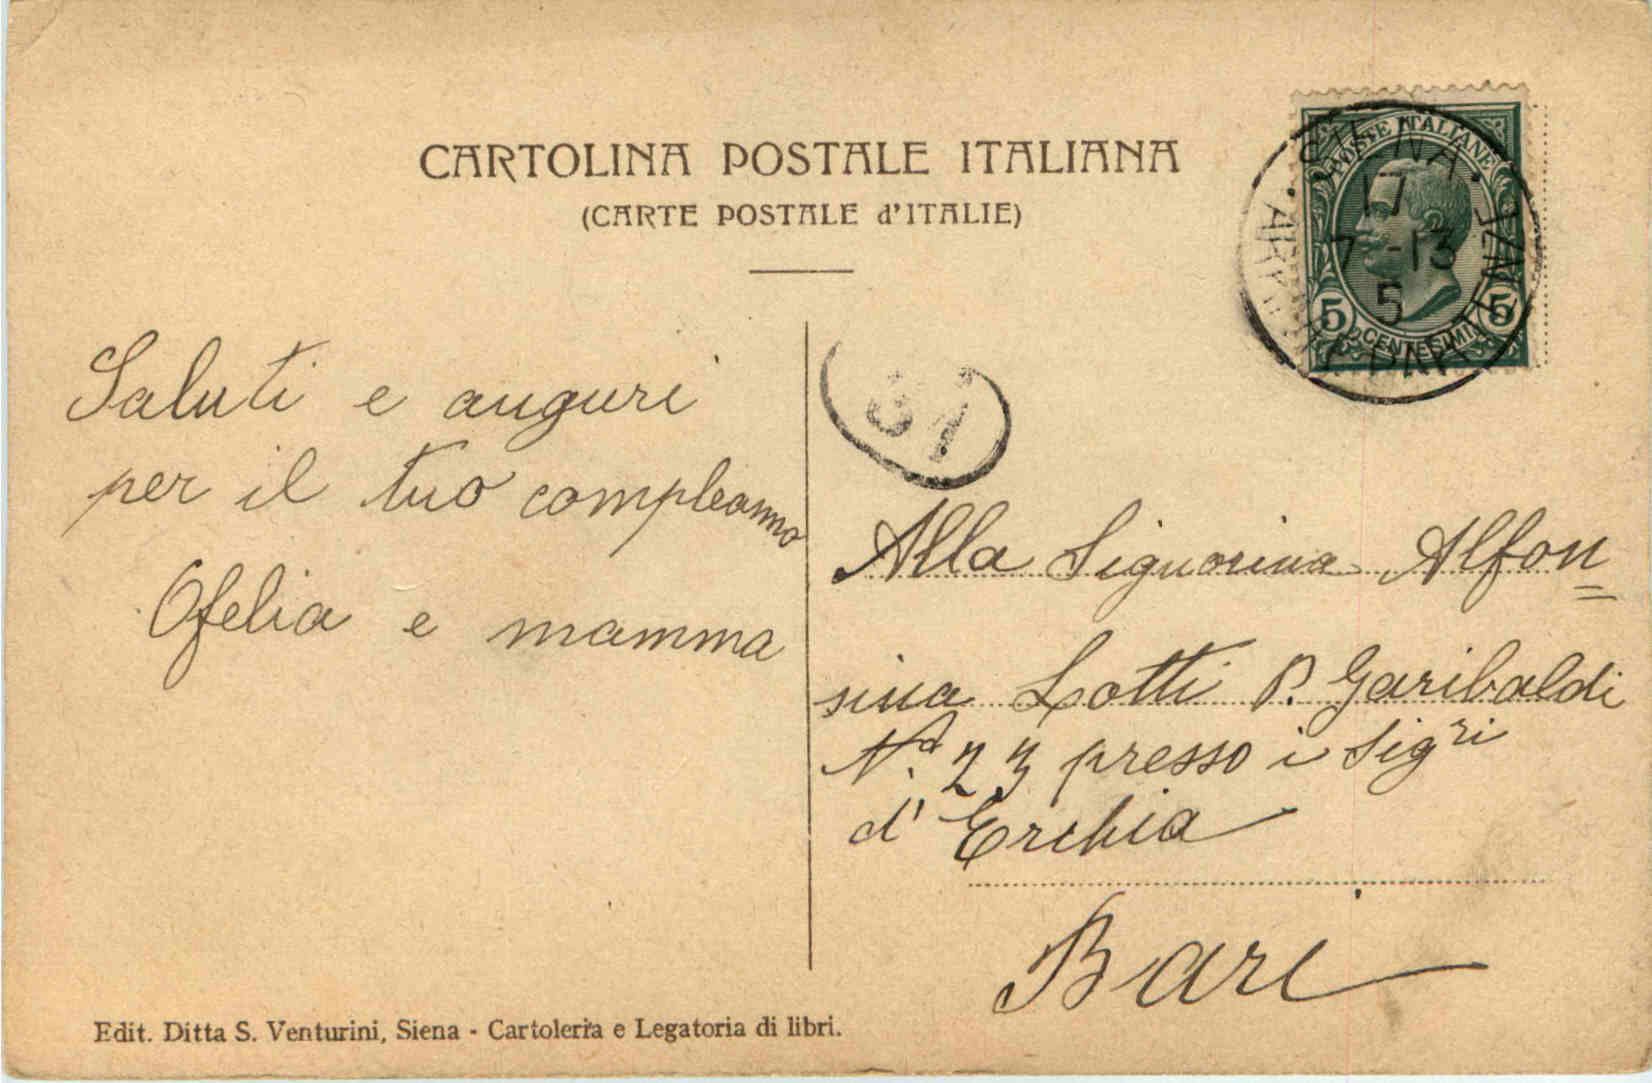 CARTOLINA POSTALE ITALIANA
(CARTE POSTALE d'ITALIE)
POSTE ITALIANE
5 CENTESIMI 5
SIENA
17
7 -13
5
31
Saluti e auguri
per il tuo compleanno
Ofelia e mamma
Alla Signorina Alfon=
sina Lotti P. Garibaldi
N.º 23 presso i Sigri
d'Erchia
Bari
Edit. Ditta S. Venturini, Siena - Cartoleria e Legatoria di libri.